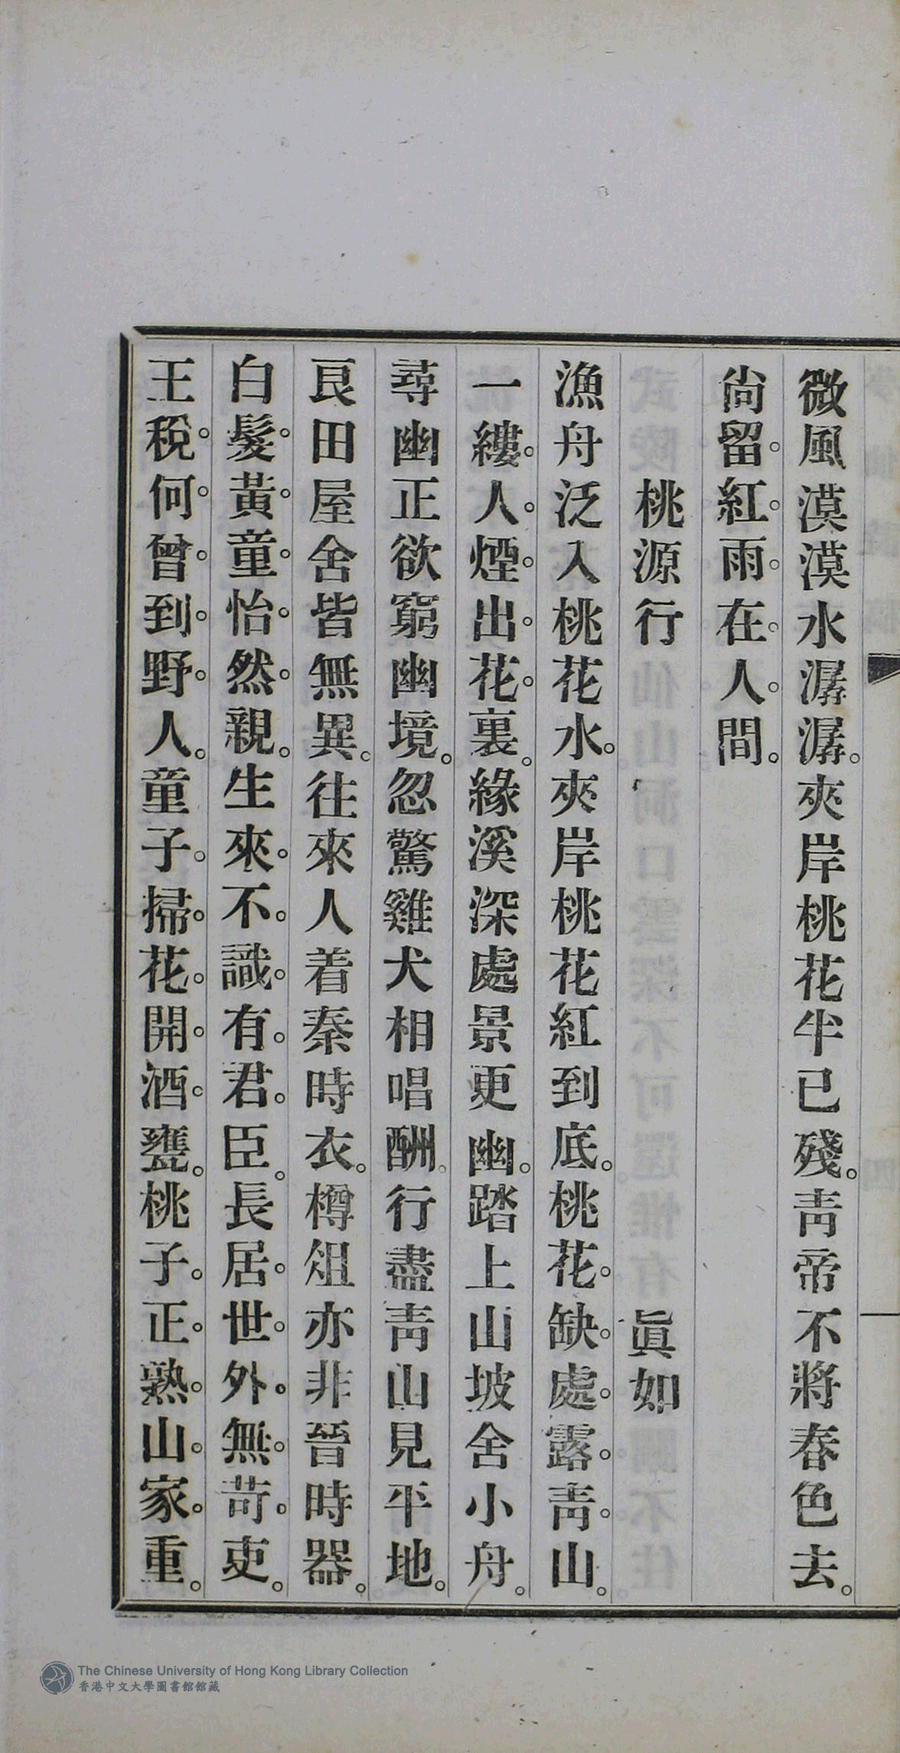 微風漠漠水潺潺。夾岸桃花半已殘。青帝不將春色去。
尙留。紅。雨。在。人。間。
桃源行 眞如
漁舟泛入桃花水。夾岸桃花紅到底。桃花。缺。處。露。青。山。
一縷。人。煙。出。花。裏。緣溪深處景更幽。踏上山坡舍小舟。
尋幽正欲窮幽境。忽驚雞犬相唱酬。行盡青山見平地。
良田屋舍皆無異。往來人着秦時衣。樽俎亦非晉時器。
白髮。黃。童。怡。然。親。生來。不。識。有。君。臣。長居。世。外。無。苛。吏。
王稅。何。曾。到。野。人。童子。掃。花。開。酒。甕。桃子。正。熟。山。家。重。
The Chinese University of Hong Kong Library Collection
香港中文大學圖書館館藏